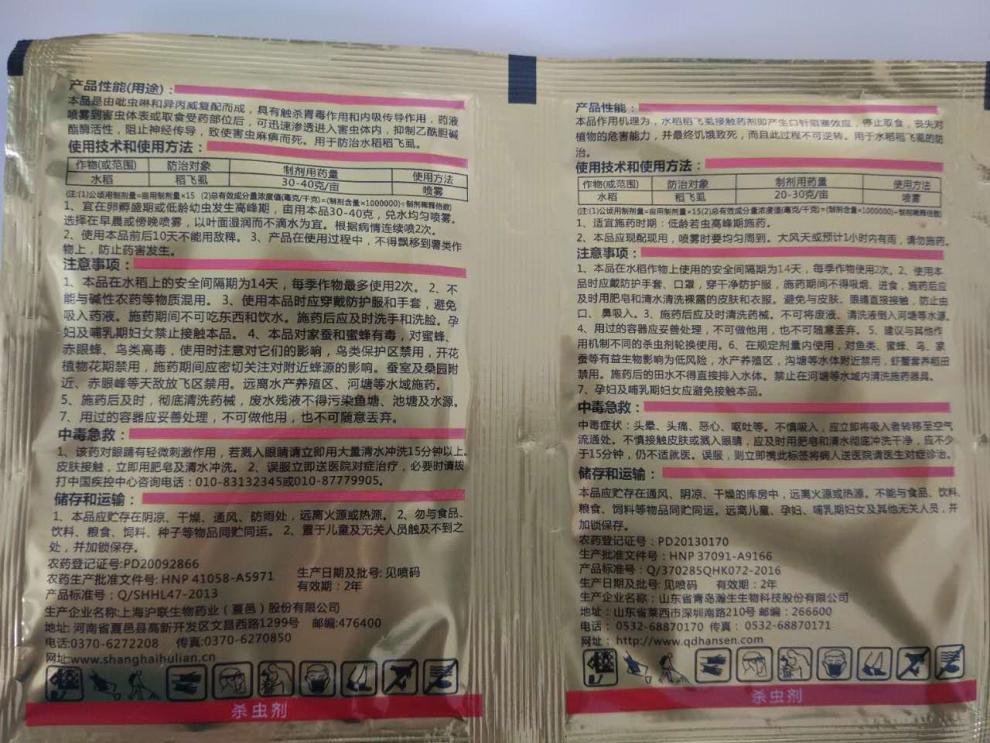 产品性能(用途)：
本品是由吡虫啉和异丙威复配而成，具有触杀胃毒作用和内吸传导作用，药液
喷雾到害虫体表或取食受药部位后，可迅速渗透进入害虫体内，抑制乙酰胆碱
酯酶活性，阻止神经传导，致使害虫麻痹而死。用于防治水稻稻飞虱。
使用技术和使用方法：
作物(或范围) 防治对象 制剂用药量 使用方法
水稻 稻飞虱 30-40克/亩 喷雾
(注:(1)公顷用制剂量=亩用制剂量×15 (2)总有效成分量浓度值(毫克/千克)=(制剂含量×1000000)÷制剂稀释倍数)
1、宜在卵孵盛期或低龄幼虫发生高峰期，亩用本品30-40克，兑水均匀喷雾。
选择在早晨或傍晚喷雾，以叶面湿润而不滴水为宜。根据病情连续喷2次。
2、使用本品前后10天不能用敌稗。3、产品在使用过程中，不得飘移到薯类作
物上，防止药害发生。
注意事项：
1、本品在水稻上的安全间隔期为14天，每季作物最多使用2次。2、不
能与碱性农药等物质混用。3、使用本品时应穿戴防护服和手套，避免
吸入药液。施药期间不可吃东西和饮水。施药后应及时洗手和洗脸。孕
妇及哺乳期妇女禁止接触本品。4、本品对家蚕和蜜蜂有毒，对蜜蜂、
赤眼蜂、鸟类高毒，使用时注意对它们的影响，鸟类保护区禁用，开花
植物花期禁用，施药期间应密切关注对附近蜂源的影响。蚕室及桑园附
近、赤眼蜂等天敌放飞区禁用。远离水产养殖区、河塘等水域施药。
5、施药后及时，彻底清洗药械，废水残液不得污染鱼塘、池塘及水源。
7、用过的容器应妥善处理，不可做他用，也不可随意丢弃。
中毒急救：
1、该药对眼睛有轻微刺激作用，若溅入眼睛请立即用大量清水冲洗15分钟以上。
皮肤接触，立即用肥皂及清水冲洗。2、误服立即送医院对症治疗，必要时请拔
打中国疾控中心咨询电话：010-83132345或010-87779905。
储存和运输：
1、本品应贮存在阴凉、干燥、通风、防雨处，远离火源或热源。2、勿与食品、
饮料、粮食、饲料、种子等物品同贮同运。2、置于儿童及无关人员触及不到之
处，并加锁保存。
农药登记证号:PD20092866
农药生产批准文件号: HNP 41058-A5971 生产日期及批号: 见喷码
产品标准号：Q/SHHL47-2013 有效期：2年
生产企业名称:上海沪联生物药业（夏邑）股份有限公司
地址: 河南省夏邑县高新开发区文昌西路1299号 邮编:476400
电话:0370-6272208 传真:0370-6270850
网址:www.shanghaihulian.cn
杀虫剂
产品性能：
本品作用机理为，水稻稻飞虱接触药剂即产生口针阻塞效应，停止取食，丧失对
植物的危害能力，并最终饥饿致死，而且此过程不可逆转。用于水稻稻飞虱的防
治。
使用技术和使用方法：
作物(或范围) 防治对象 制剂用药量 使用方法
水稻 稻飞虱 20-30克/亩 喷雾
(注:(1)公顷用制剂量=亩用制剂量×15(2)总有效成分量浓度值(毫克/千克)=(制剂含量×1000000)÷制剂稀释倍数)
1、适宜施药时期：低龄若虫高峰期施药。
2、本品应现配现用，喷雾时要均匀周到。大风天或预计1小时内有雨，请勿施药。
注意事项：
1、本品在水稻作物上使用的安全间隔期为14天，每季作物使用2次。2、使用本
品时应戴防护手套、口罩，穿干净防护服，施药期间不得吸烟、进食，施药后应
及时用肥皂和清水清洗裸露的皮肤和衣服。避免与皮肤、眼睛直接接触，防止由
口、鼻吸入。3、施药后应及时清洗药械。不可将废液、清洗液倒入河塘等水源。
4、用过的容器应妥善处理，不可做他用，也不可随意丢弃。5、建议与其他作
用机制不同的杀虫剂轮换使用。6、在规定剂量内使用，对鱼类、蜜蜂、鸟、家
蚕等有益生物影响为低风险，水产养殖区，沟塘等水体附近禁用，虾蟹套养稻田
禁用。施药后的田水不得直接排入水体。禁止在河塘等水域内清洗施药器具。
7、孕妇及哺乳期妇女应避免接触本品。
中毒急救：
中毒症状：头晕、头痛、恶心、呕吐等。不慎吸入，应立即将吸入者转移至空气
流通处。不慎接触皮肤或溅入眼睛，应及时用肥皂和清水彻底冲洗干净，应不少
于15分钟，仍不适就医。误服，则立即携此标签将病人送医院请医生对症诊治。
储存和运输：
本品应贮存在通风、阴凉、干燥的库房中，远离火源或热源。不能与食品、饮料、
粮食、饲料等物品同贮同运。远离儿童、孕妇、哺乳期妇女及其他无关人员，并
加锁保存。
农药登记证号：PD20130170
生产批准文件号：HNP 37091-A9166
产品标准号：Q/370285QHK072-2016
生产日期及批号: 见喷码 有效期：2年
生产企业名称：山东省青岛瀚生生物科技股份有限公司
地址：山东省莱西市深圳南路210号 邮编：266600
电话： 0532-68870170 传真： 0532-68870171
网址： http://www.qdhansen.com
杀虫剂